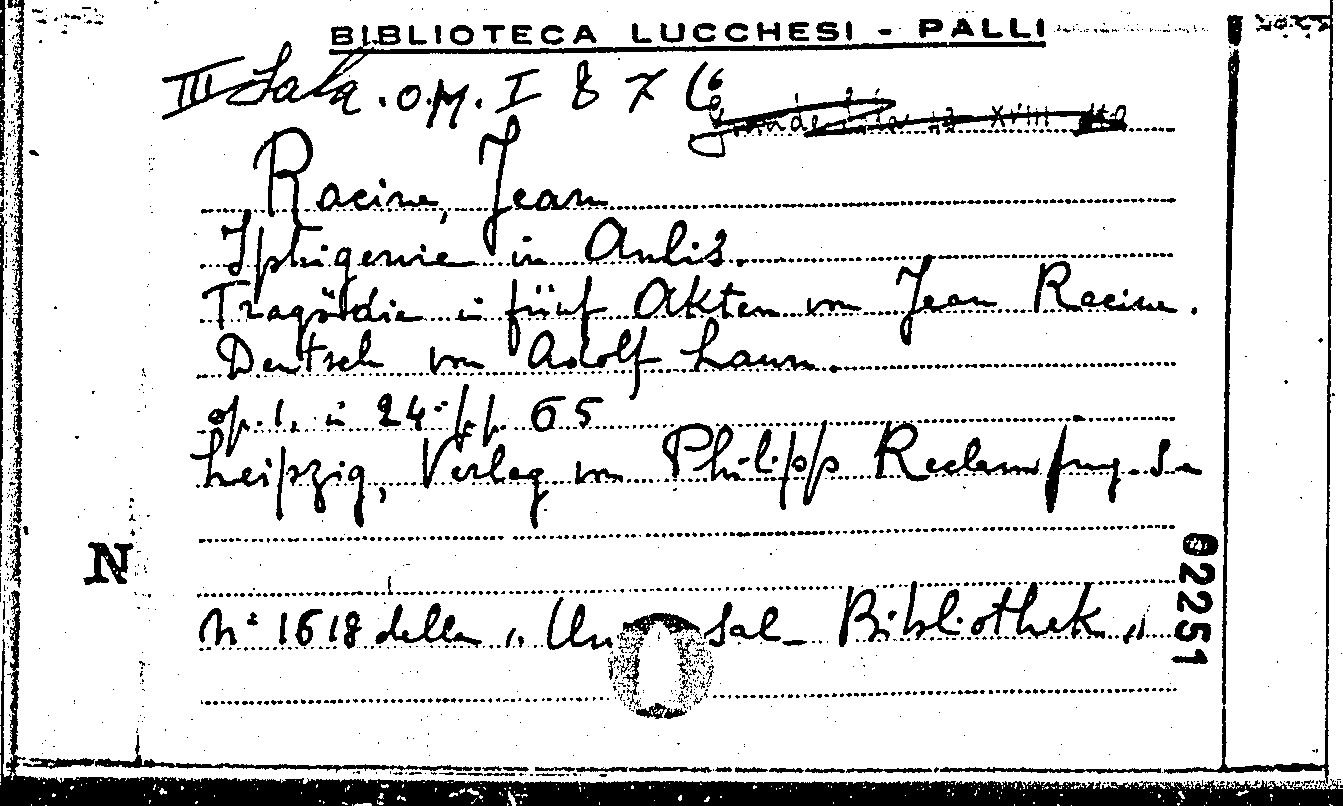 BIBLIOTECA LUCCHESI - PALLI
III Sala. O.M. I 8 7 (6
Racine, Jean
Iphigenie in Aulis.
Tragödie in fünf Akten von Jean Racine.
Deutsch von Adolf Laun.
op. 1. in 24° pp. 65
Leipzig, Verlag von Philipp Reclam jun. S. a
N
02251
N° 1618 della „ Un sal- Bibliothek „